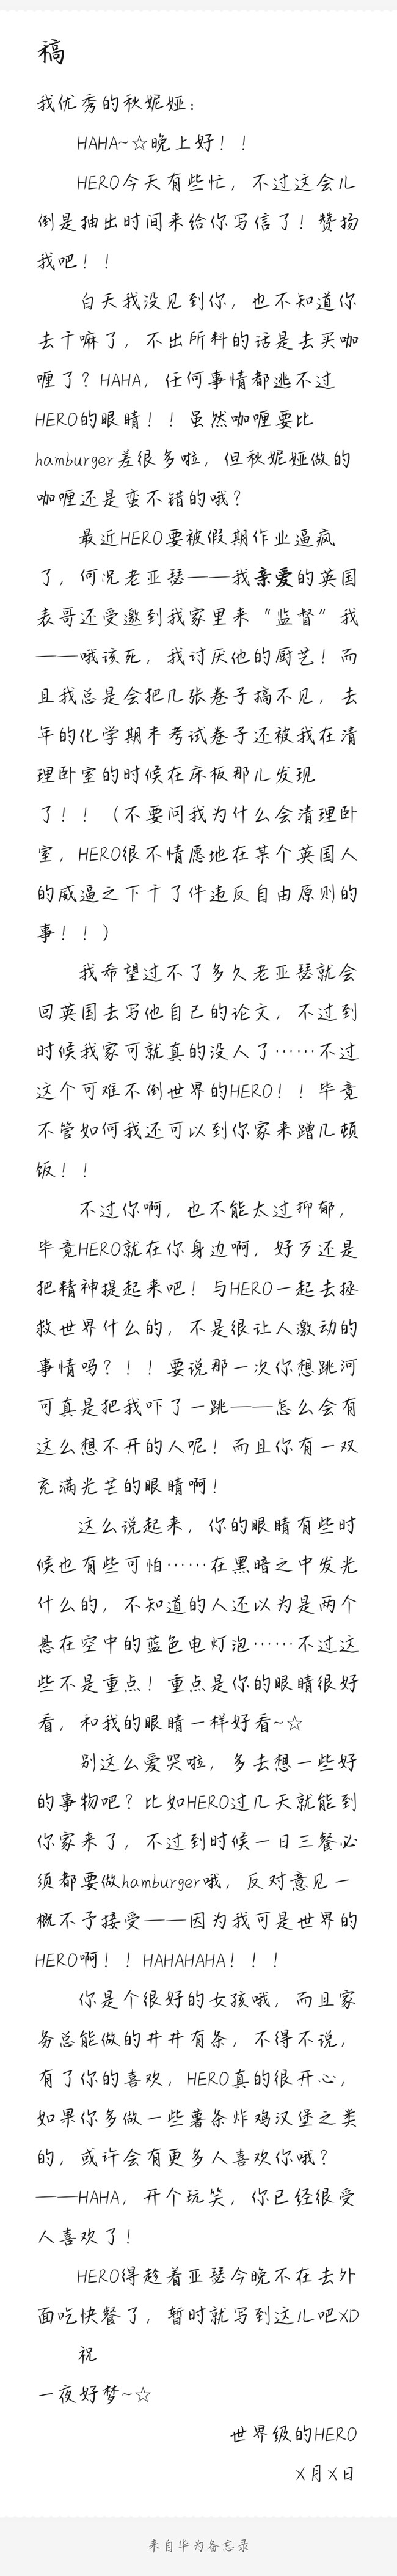 稿
我优秀的秋妮娅：
HAHA~☆晚上好！！
HERO今天有些忙，不过这会儿
倒是抽出时间来给你写信了！赞扬
我吧！！
白天我没见到你，也不知道你
去干嘛了，不出所料的话是去买咖
喱了？HAHA，任何事情都逃不过
HERO的眼睛！！虽然咖喱要比
hamburger差很多啦，但秋妮娅做的
咖喱还是蛮不错的哦？
最近HERO要被假期作业逼疯
了，何况老亚瑟——我亲爱的英国
表哥还受邀到我家里来“监督”我
——哦该死，我讨厌他的厨艺！而
且我总是会把几张卷子搞不见，去
年的化学期末考试卷子还被我在清
理卧室的时候在床板那儿发现
了！！（不要问我为什么会清理卧
室，HERO很不情愿地在某个英国人
的威逼之下干了件违反自由原则的
事！！）
我希望过不了多久老亚瑟就会
回英国去写他自己的论文，不过到
时候我家可就真的没人了……不过
这个可难不倒世界的HERO！！毕竟
不管如何我还可以到你家来蹭几顿
饭！！
不过你啊，也不能太过抑郁，
毕竟HERO就在你身边啊，好歹还是
把精神提起来吧！与HERO一起去拯
救世界什么的，不是很让人激动的
事情吗？！！要说那一次你想跳河
可真是把我吓了一跳——怎么会有
这么想不开的人呢！而且你有一双
充满光芒的眼睛啊！
这么说起来，你的眼睛有些时
候也有些可怕……在黑暗之中发光
什么的，不知道的人还以为是两个
悬在空中的蓝色电灯泡……不过这
些不是重点！重点是你的眼睛很好
看，和我的眼睛一样好看~☆
别这么爱哭啦，多去想一些好
的事物吧？比如HERO过几天就能到
你家来了，不过到时候一日三餐必
须都要做hamburger哦，反对意见一
概不予接受——因为我可是世界的
HERO啊！！HAHAHAHA！！！
你是个很好的女孩哦，而且家
务总能做的井井有条，不得不说，
有了你的喜欢，HERO真的很开心，
如果你多做一些薯条炸鸡汉堡之类
的，或许会有更多人喜欢你哦？
——HAHA，开个玩笑，你已经很受
人喜欢了！
HERO得趁着亚瑟今晚不在去外
面吃快餐了，暂时就写到这儿吧XD
祝
一夜好梦~☆
世界级的HERO
X月X日
来自华为备忘录